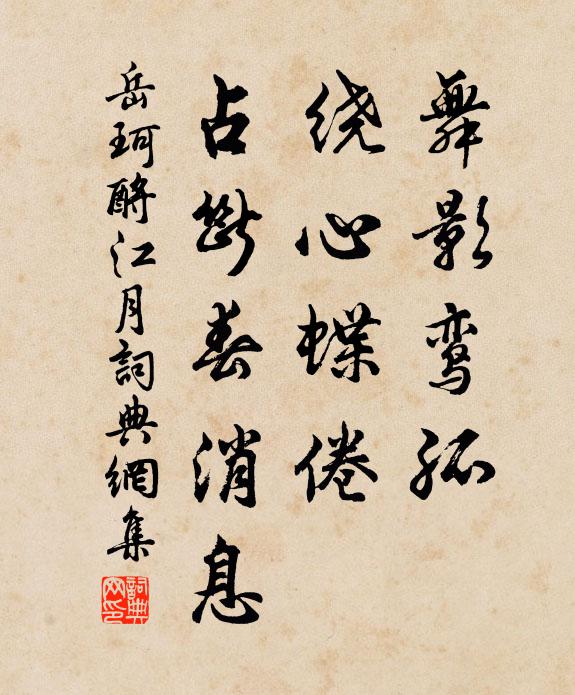 舞影鸾孤
绕心蝶倦
占断春消息
岳珂酹江月詞典網集
詞典网印